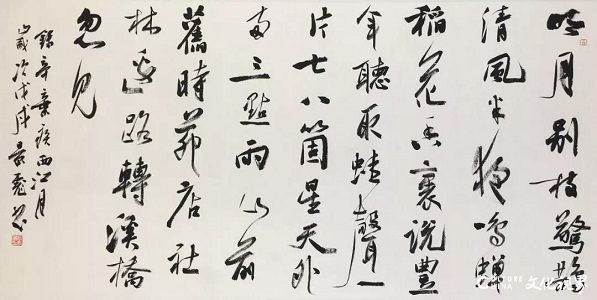 明月別枝驚鵲
清風半夜鳴蟬
稻花香裏説豐
年聽取蛙聲一
片七八箇星天外
兩三點雨山前
舊時茆店社
林邊路轉溪橋
忽見
錄辛棄疾西江月
歲次戊戌
CULTURE
CHINA